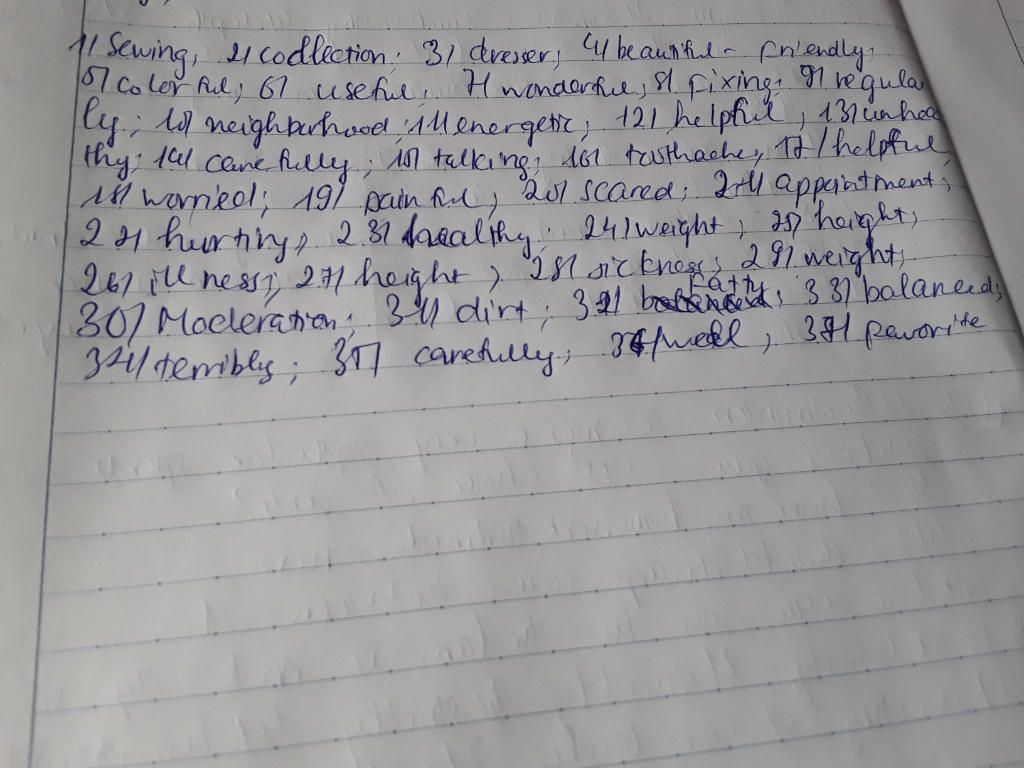 1/ Sewing, 2/ codllection; 3/ dresser; 4/ beautiful - friendly;
5/ colorful; 6/ useful; 7/ wonderful; 8/ fixing; 9/ regula
ly; 10/ neighburhood; 11/ energetic; 12/ helpful; 13/ unheal
thy; 14/ carefully; 15/ talking; 16/ toothache; 17/ helpful
18/ worried; 19/ painful; 20/ scared; 21/ appointment;
22/ hurting; 23/ healthy; 24/ weight; 25/ height;
26/ illness; 27/ height; 28/ sickness; 29/ weight;
30/ Moderation; 31/ dirt; 32/ Fatty; 33/ balanced;
34/ terribly; 35/ carefully; 36/ well, 37/ favorite